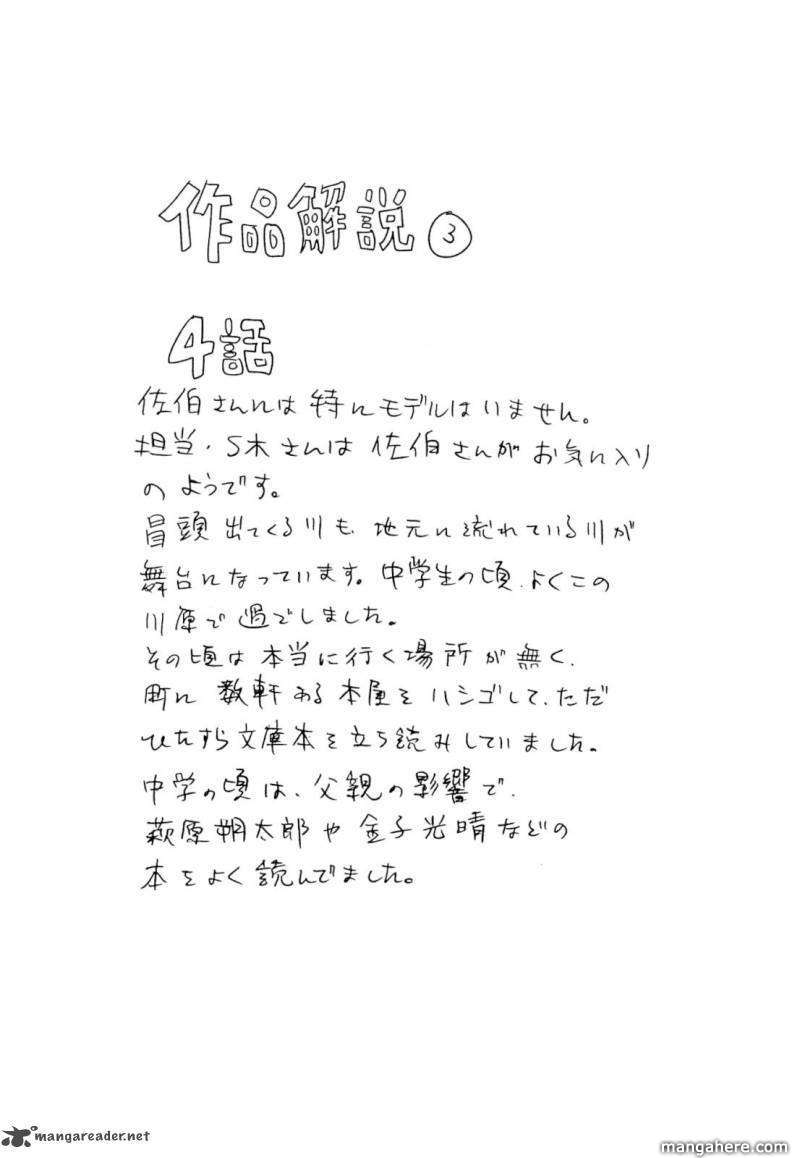 作品解説③
4話
佐伯さんには特にモデルはいません。
担当・S木さんは佐伯さんがお気に入り
のようです。
冒頭出てくる川も、地元に流れている川が
舞台になっています。中学生の頃、よくこの
川原で過ごしました。
その頃は本当に行く場所が無く、
町に数軒ある本屋をハシゴして、ただ
ひたすら文庫本を立ち読みしていました。
中学の頃は、父親の影響で、
萩原朔太郎や金子光晴などの
本をよく読んでました。
mangareader.net
mangahere.com